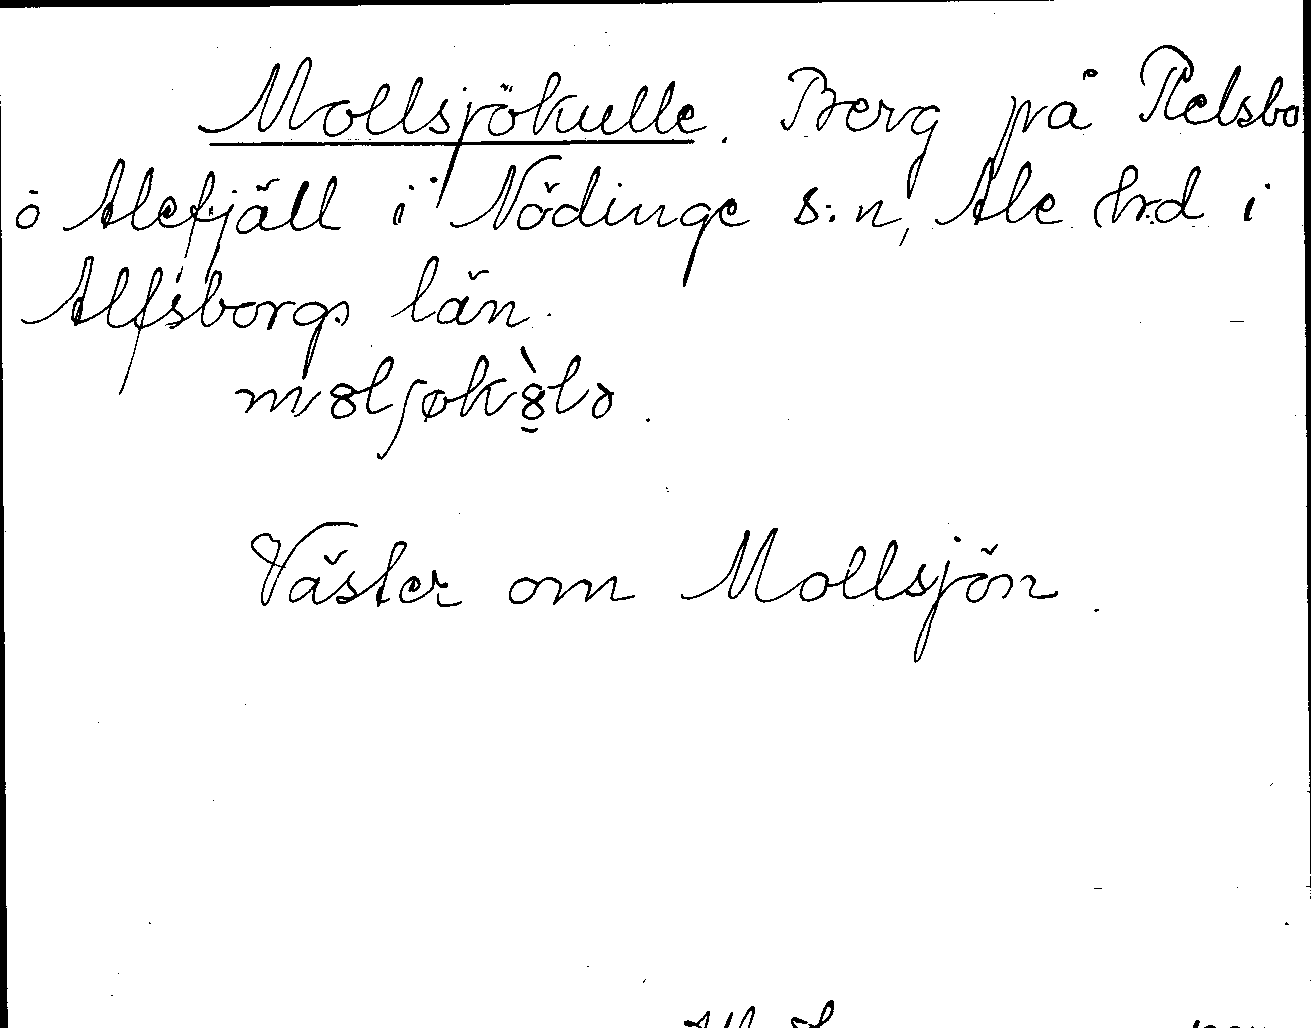 Mollsjökulle. Berg på Relsbo
å Alefjäll i Nödinge s:n, Ale hrd i
Älfsborgs län.

Väster om Mollsjön.